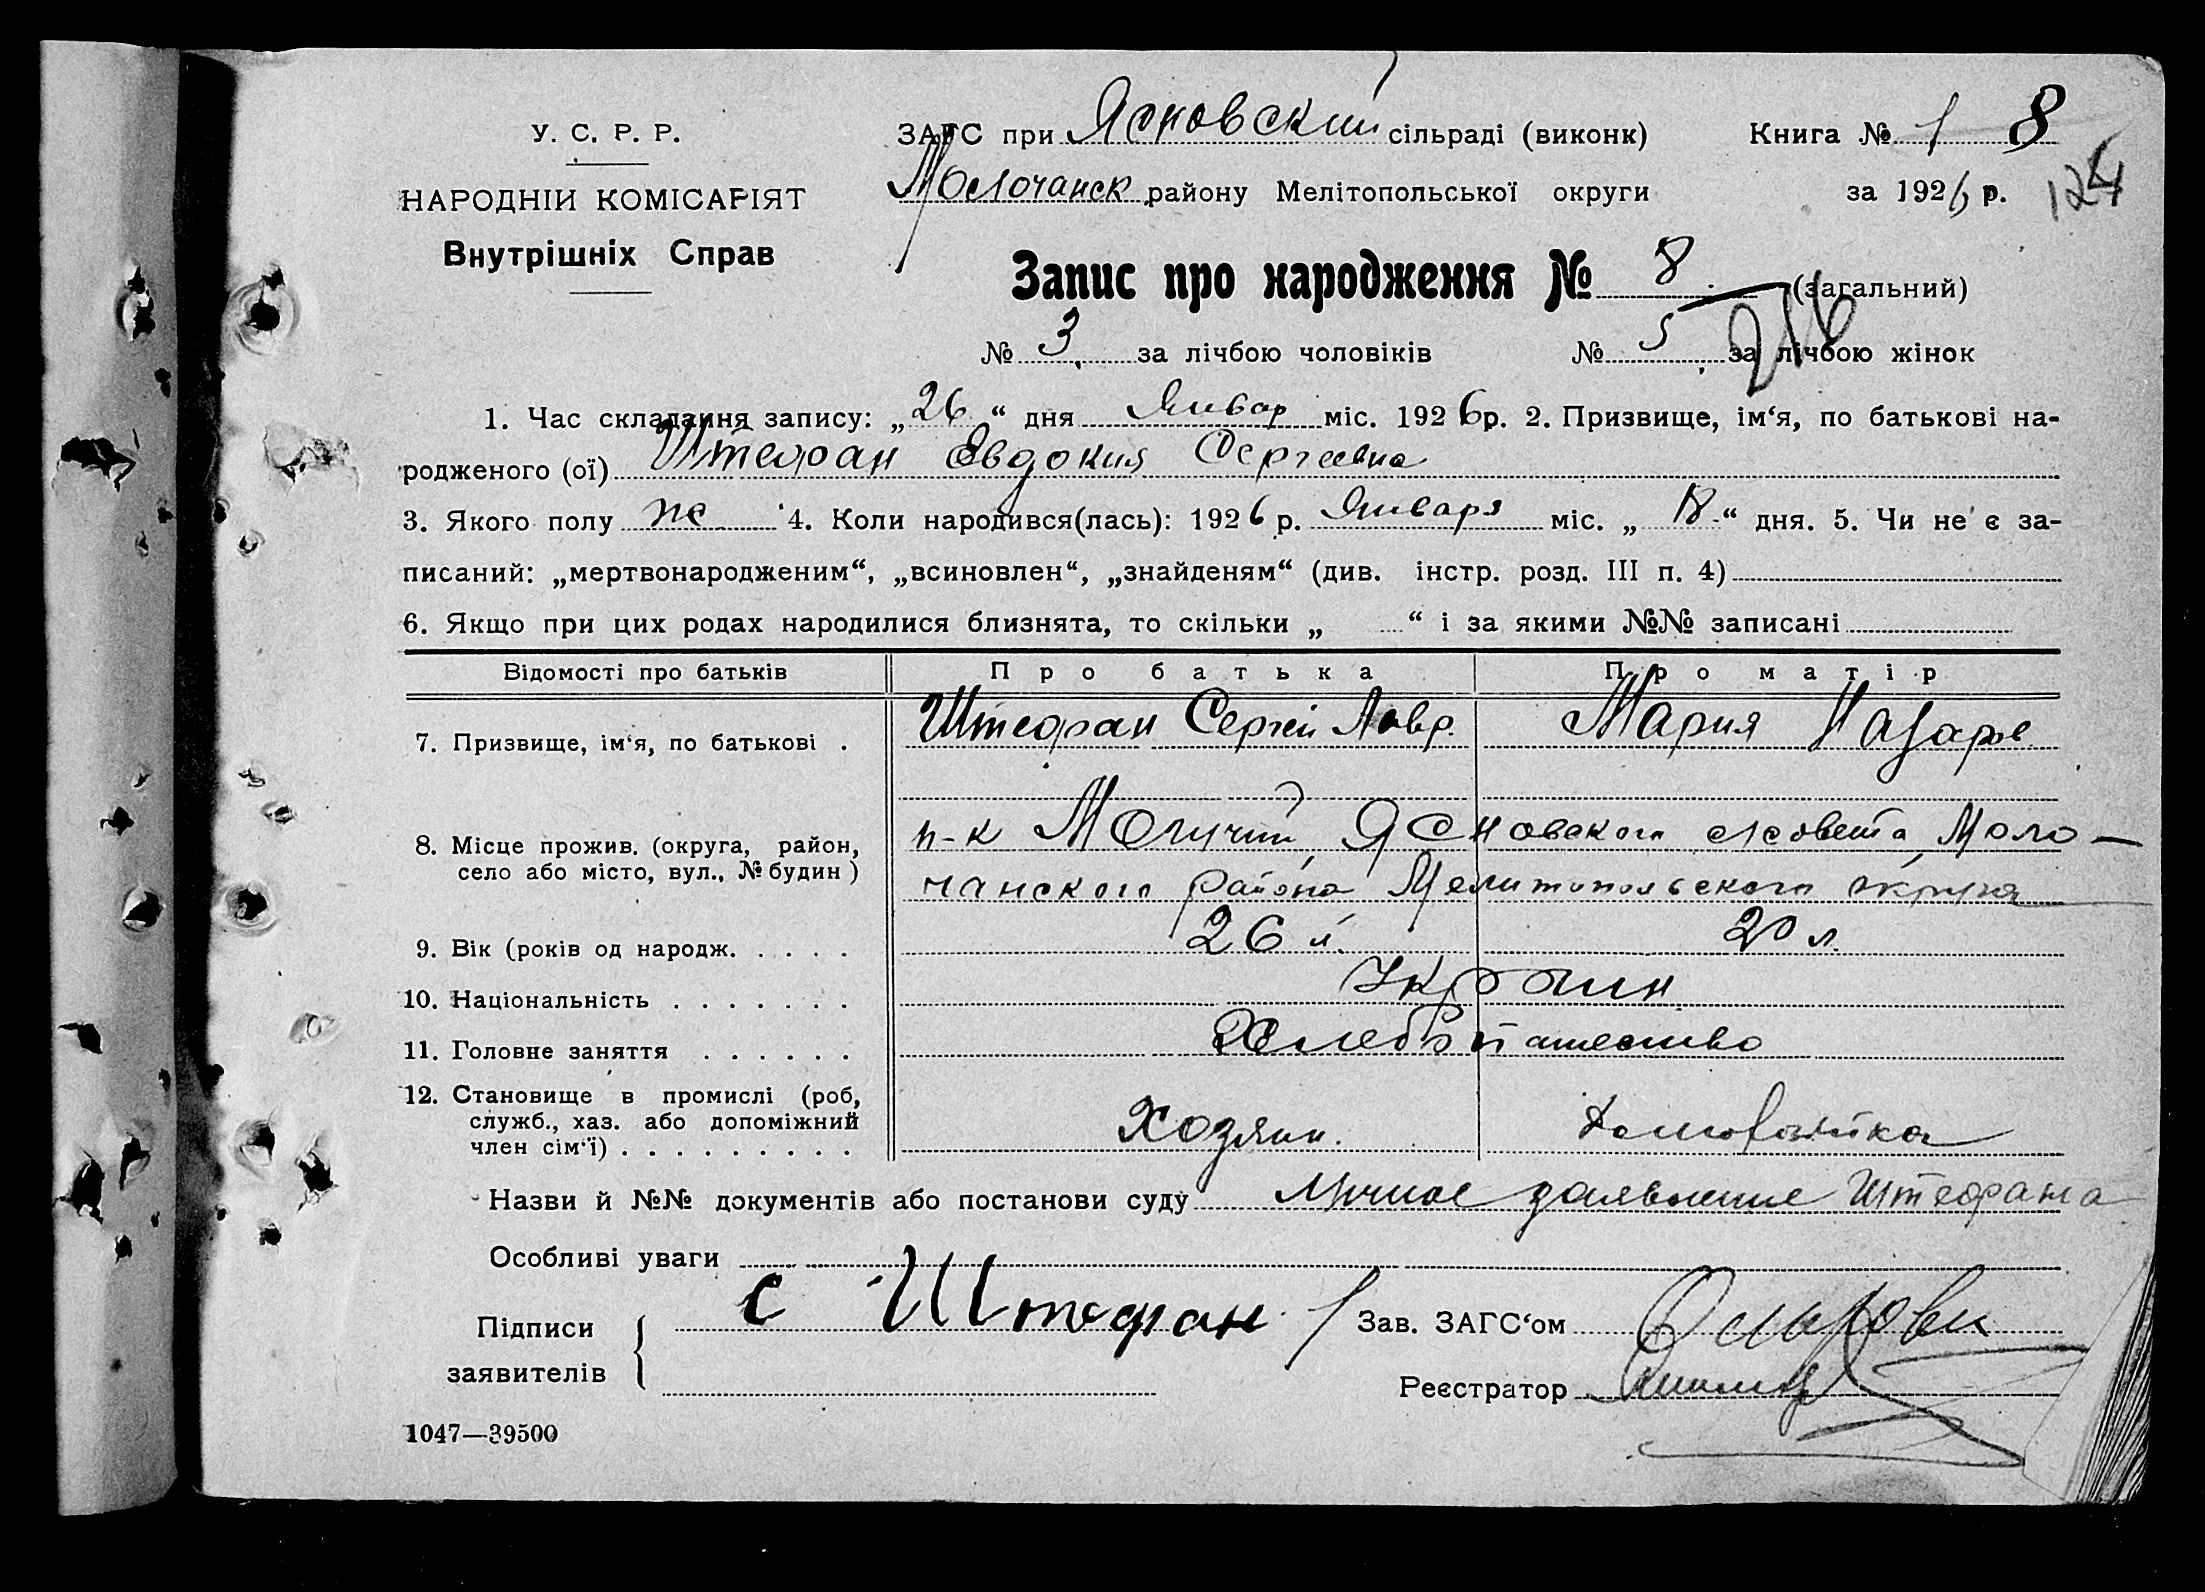 У. С. Р. Р.
НАРОДНІЙ КОМІСАРІЯТ
Внутрішніх Справ
ЗАГС при Ясновский сільраді (виконк) Книга № 1 8
Молочанск району Мелітопольської округи за 1926 р. 124
Запис про народження № 8 (загальний)
№ 3 за лічбою чоловіків № 5 за лічбою жінок
216
1. Час складання запису: „26“ дня Январ міс. 1926р. 2. Призвище, ім‘я, по батькові на-
родженого (ої) Штефан Евдокия Сергеевна
3. Якого полу ж 4. Коли народився(лась): 1926 р. Января міс. „18“ дня. 5. Чи не є за-
писаний: „мертвонародженим“, „всиновлен“, „знайденям“ (див. інстр. розд. III п. 4)
6. Якщо при цих родах народилися близнята, то скільки „ “ і за якими №№ записані
Відомості про батьків Про батька Про матір
7. Призвище, ім‘я, по батькові . Штефан Сергей Лавр. Мария Назаров
8. Місце прожив. (округа, район, п-к Могучий, Ясновского с/совета, Моло-
село або місто, вул., № будин) чанского района Мелитопольского округа
9. Вік (років од народж. . . . . 26 л. 20 л.
10. Національність . . . . . . . Украин
11. Головне заняття . . . . . . Хлебопашество
12. Становище в промислі (роб,
служб., хаз. або допоміжний
член сім‘ї) . . . . . . . . . Хозяин. Домохазяйка
Назви й №№ документів або постанови суду Личное заявление Штефана
Особливі уваги
Підписи С Штефан Зав. ЗАГС‘ом
заявителів Реєстратор
1047—39500